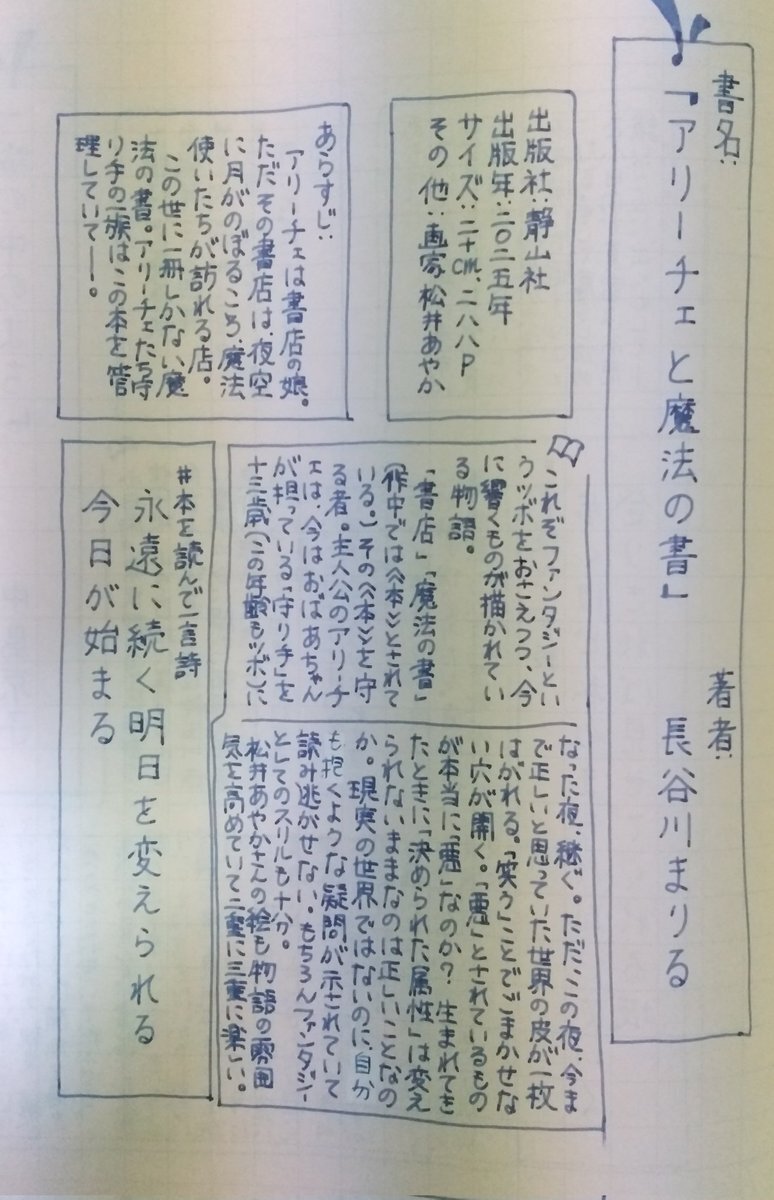 書名:
『アリーチェと魔法の書』
著者:
長谷川まりる
出版社:静山社
出版年:二〇二五年
サイズ:二十cm、二八八P
その他:画家 松井あやか
あらすじ:
アリーチェは書店の娘。
ただその書店は、夜空
に月がのぼるころ、魔法
使いたちが訪れる店。
この世に一冊しかない魔
法の書。アリーチェたち守
り手の一族はこの本を管
理していて―。
これぞファンタジーとい
うツボをおさえつつ、今
に響くものが描かれてい
る物語。
「書店」「魔法の書」
(作中では《本》とされて
いる。)その《本》を守
る者。主人公のアリーチ
ェは、今はおばあちゃん
が担っている「守り手」を
十三歳(この年齢もツボ)に
なった夜、継ぐ。ただこの夜、今ま
で正しいと思っていた世界の皮が一枚
はがれる。「笑う」ことでごまかせな
い穴が開く。「悪」とされているもの
が本当に「悪」なのか?生まれてき
たときに「決められた属性」は変え
られないままなのは正しいことなの
か。現実の世界ではないのに、自分
も抱くような疑問が示されていて
読み逃がせない。もちろんファンタジー
としてのスリルも十分。
松井あやかさんの絵も物語の雰囲
気を高めていて二重に三重に楽しい。
#本を読んで一言詩
永遠に続く明日を変えられる
今日が始まる